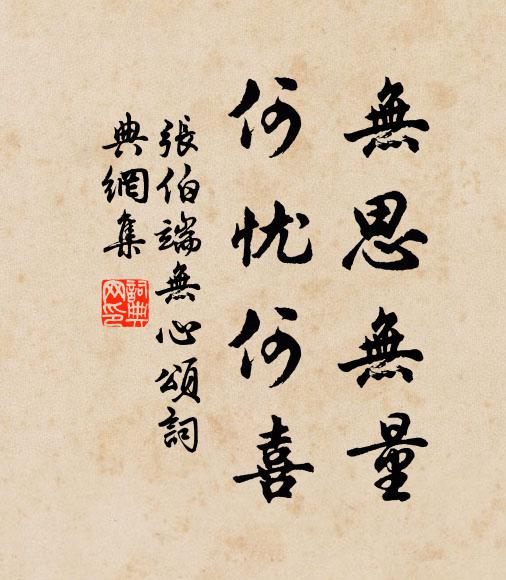 無思無量
何忧何喜
張伯端無心頌詞
典網集
詞典
网印